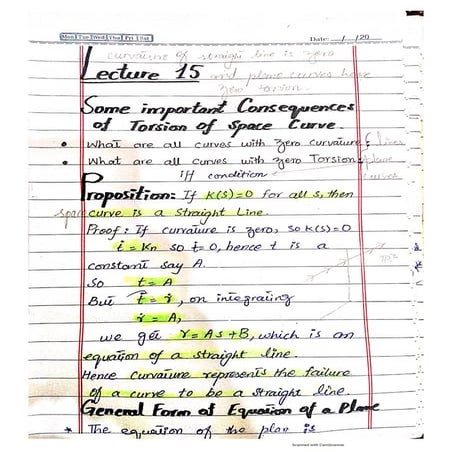 Mon Tue Wed Thu Fri Sat
Date: / /20
curvature of straight line is zero
Lecture 15 and plane curves have
zero torsion.
Some important Consequences
of Torsion of Space Curve.
• What are all curves with zero curvature? lines
• What are all curves with zero Torsion? plane
curves
iff condition
Proposition: If K(s)=0 for all s, then
space curve is a straight Line.
Proof: If curvature is zero, so K(s)=0
ṫ = Kn so ṫ=0, hence t is a
constant say A.
So t = A
But t = ṙ, on integrating
ṙ = A,
we get r = As + B, which is an
equation of a straight line.
Hence curvature represents the failure
of a curve to be a straight line.
General Form of Equation of a Plane
* The equation of the plan is
Scanned with CamScanner